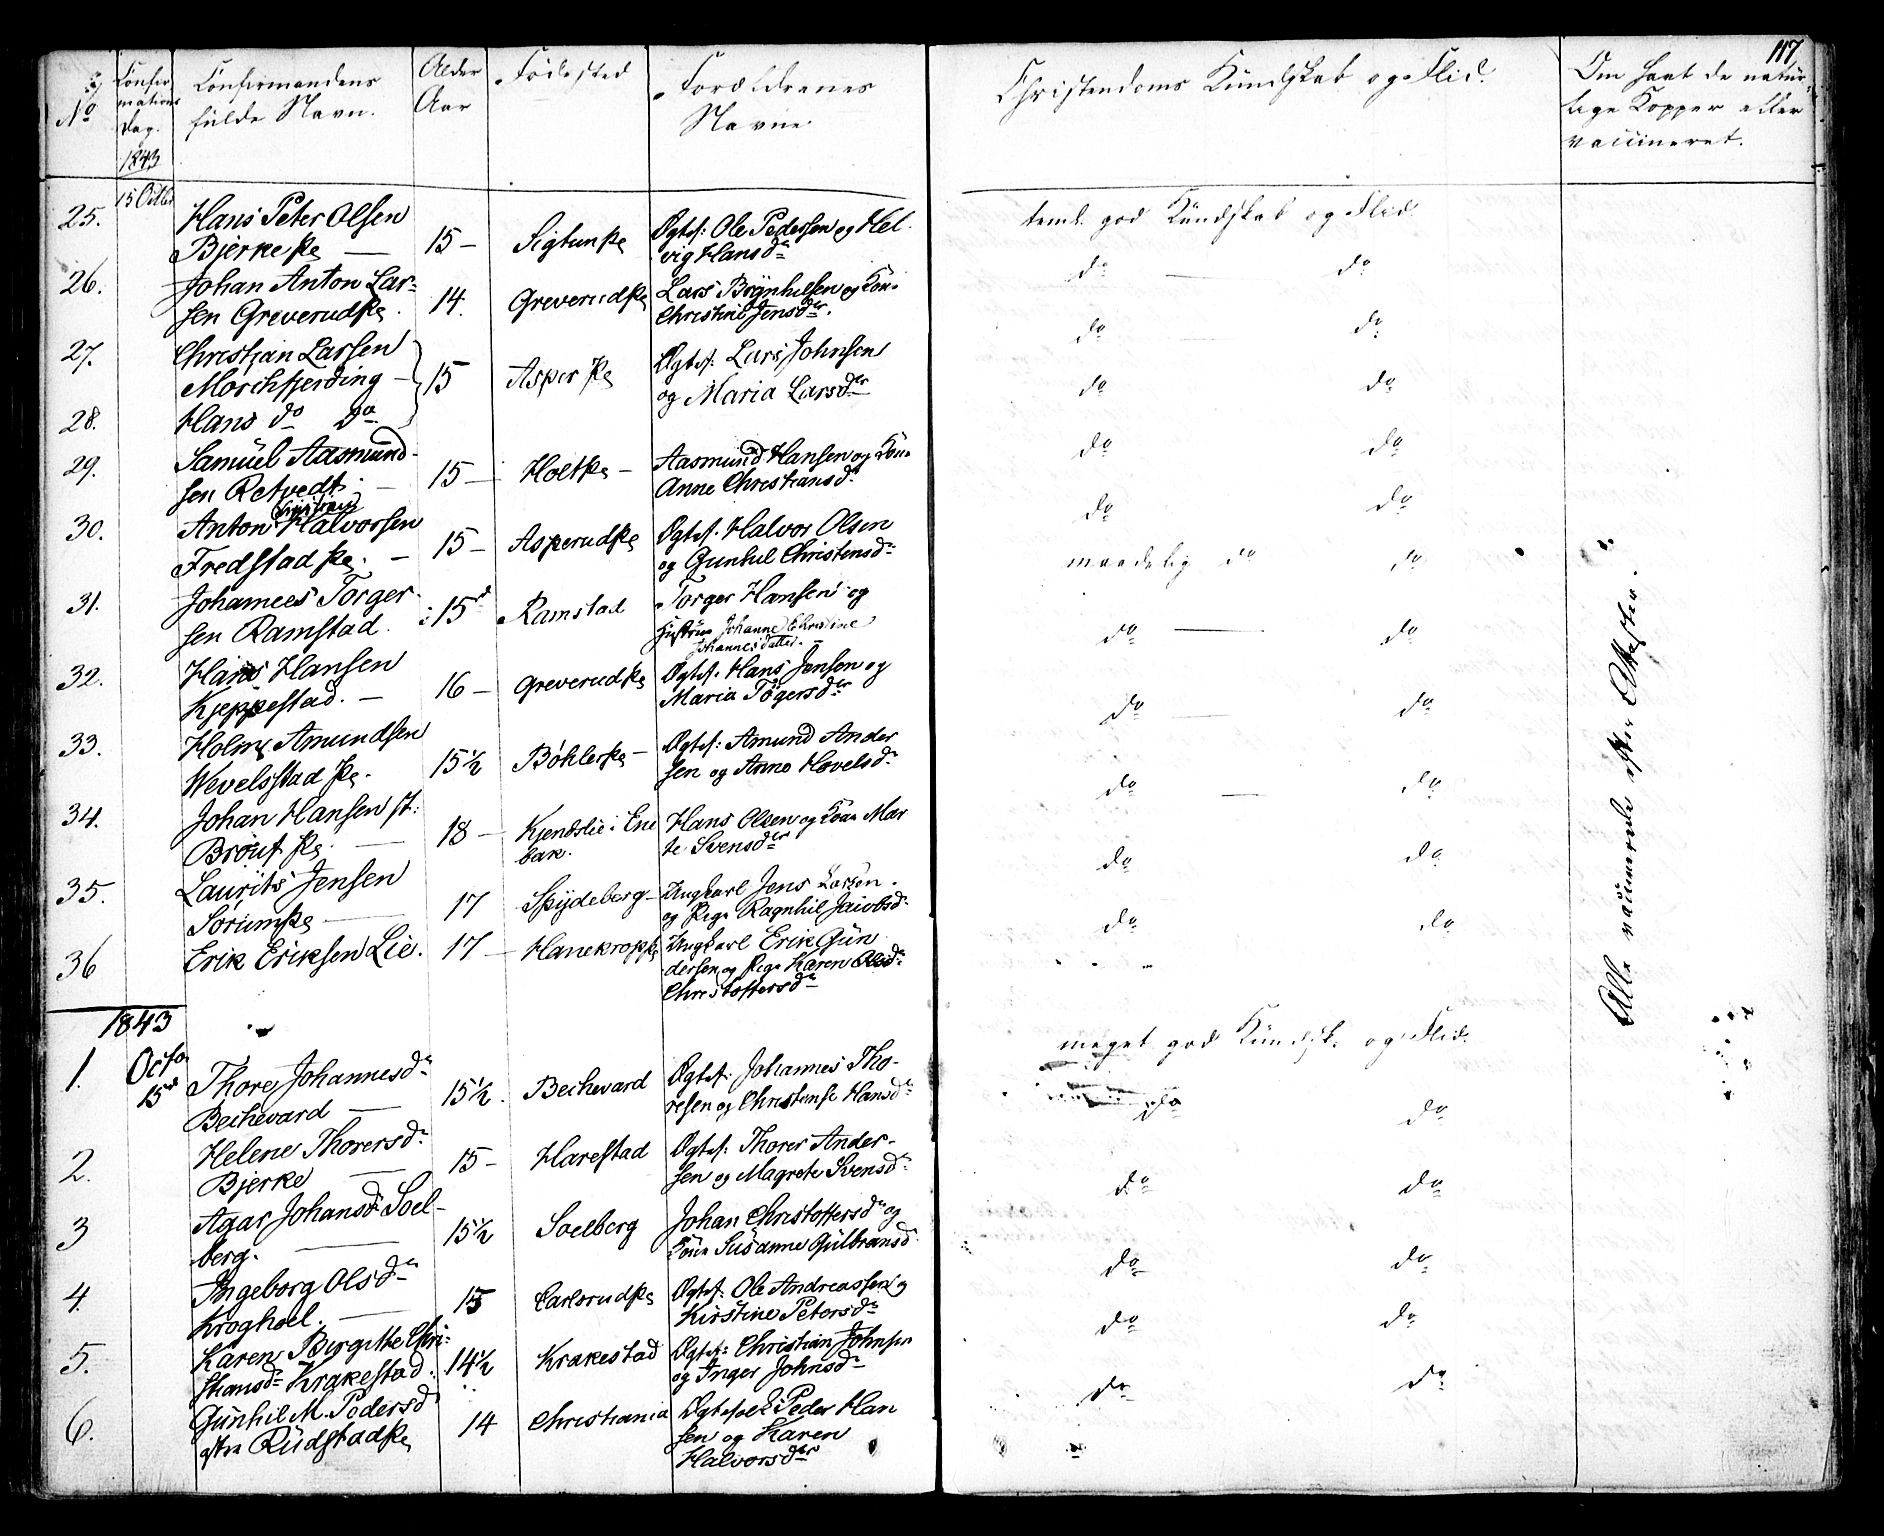 117
No
Confir
mations
Dag.
1843
Confirmandens
fulde Navn.
Alder
Aar
Fødested
Forældrenes
Navne
Christendoms Kundskab og Flid.
Om havt de natur-
lige Kopper eller
vaccineret.
25. 15 Octbr Hans Peter Olsen
Bjerke 15 – Sigtun Ægtef: Ole Pedersen og Hel-
vig Hansdr
teml. god Kundskab og Flid.
26. Johan Anton Lar-
sen Greverud 14. Greverud Lars Brynhelsen og Kone
Christine Jensdr.
do — do
27. Christian Larsen
Morckfjerding – 15 Asper Ægtef: Lars Johnsen
og Maria Larsdr
do do
28. Hans do do
do do
29. Samuel Aasmund-
sen Retvedt 15 – Holt – Aasmund Hansen og Kone
Anne Christiansdr
do do
30. Anton Halvorsen
Fredstad 15 – Asperud Ægtef. Halvor Olsen
og Gunhil Christensdr
do do
31. Johannes Torger-
sen Ramstad 15 Ramstad Torger Hansen og
Hustrue Johanne Christine
Johannesdatter.
maadelig do do
32. Hans Hansen
Kjeppestad. – 16 – Greverud Ægtef. Hans Jensen og
Maria Tøgersdr
do — do
33. Holm Amundsen
Wevelsstad 15½ Bøhler – Ægtef: Amund Ander
sen og Anne Hovelsdr
do — do
34. Johan Hansen st:
Bröut 18 – Kjendslie i Ene
bak. Hans Olsen og Kone Mar
te Svensdr
do — do
35. Laurits Jensen
Sörum 17 Spydeberg – Ungkarl Jens Larsen
og Pige Ragnhil Jacobsdr
do do
36 Erik Eriksen Lie. 17 – Hanekropp Ungkarl Erik Gun
dersen og Pige Karen
Christoffersdr
do do
Alle vaccinerede efter Attester.
1843
1. Octo
15 Thore Johannesdr
Bechevard 15½. Bechevard Ægtef: Johannes Tho-
resen og Christense Hansdr
meget god Kundsk. og Flid.
2. Helene Thorersdr
Bjerke 15 – Harestad Ægtef: Thorer Ander-
sen og Magrete Svensdr
do do
3 Agar Johansdr Soel-
berg. 15½ Soelberg Johan Christoffersen og
Kone Susanne Gulbransd
do do
4. Ingeborg Olsdr
Kroghoel. 15 Carlsrud Ægtef. Ole Andreassen og
Kirstine Petersdr
do do
5. Karen Birgitte Chri-
stiansdr Krakestad. 14½ Krakestad Ægtef: Christian Johnsen
og Inger Johnsdr
do do
6. Gunhil M. Pedersd
Rudstad 14 Christiania Peder Han
sen og Karen
Halvorsdr
do do